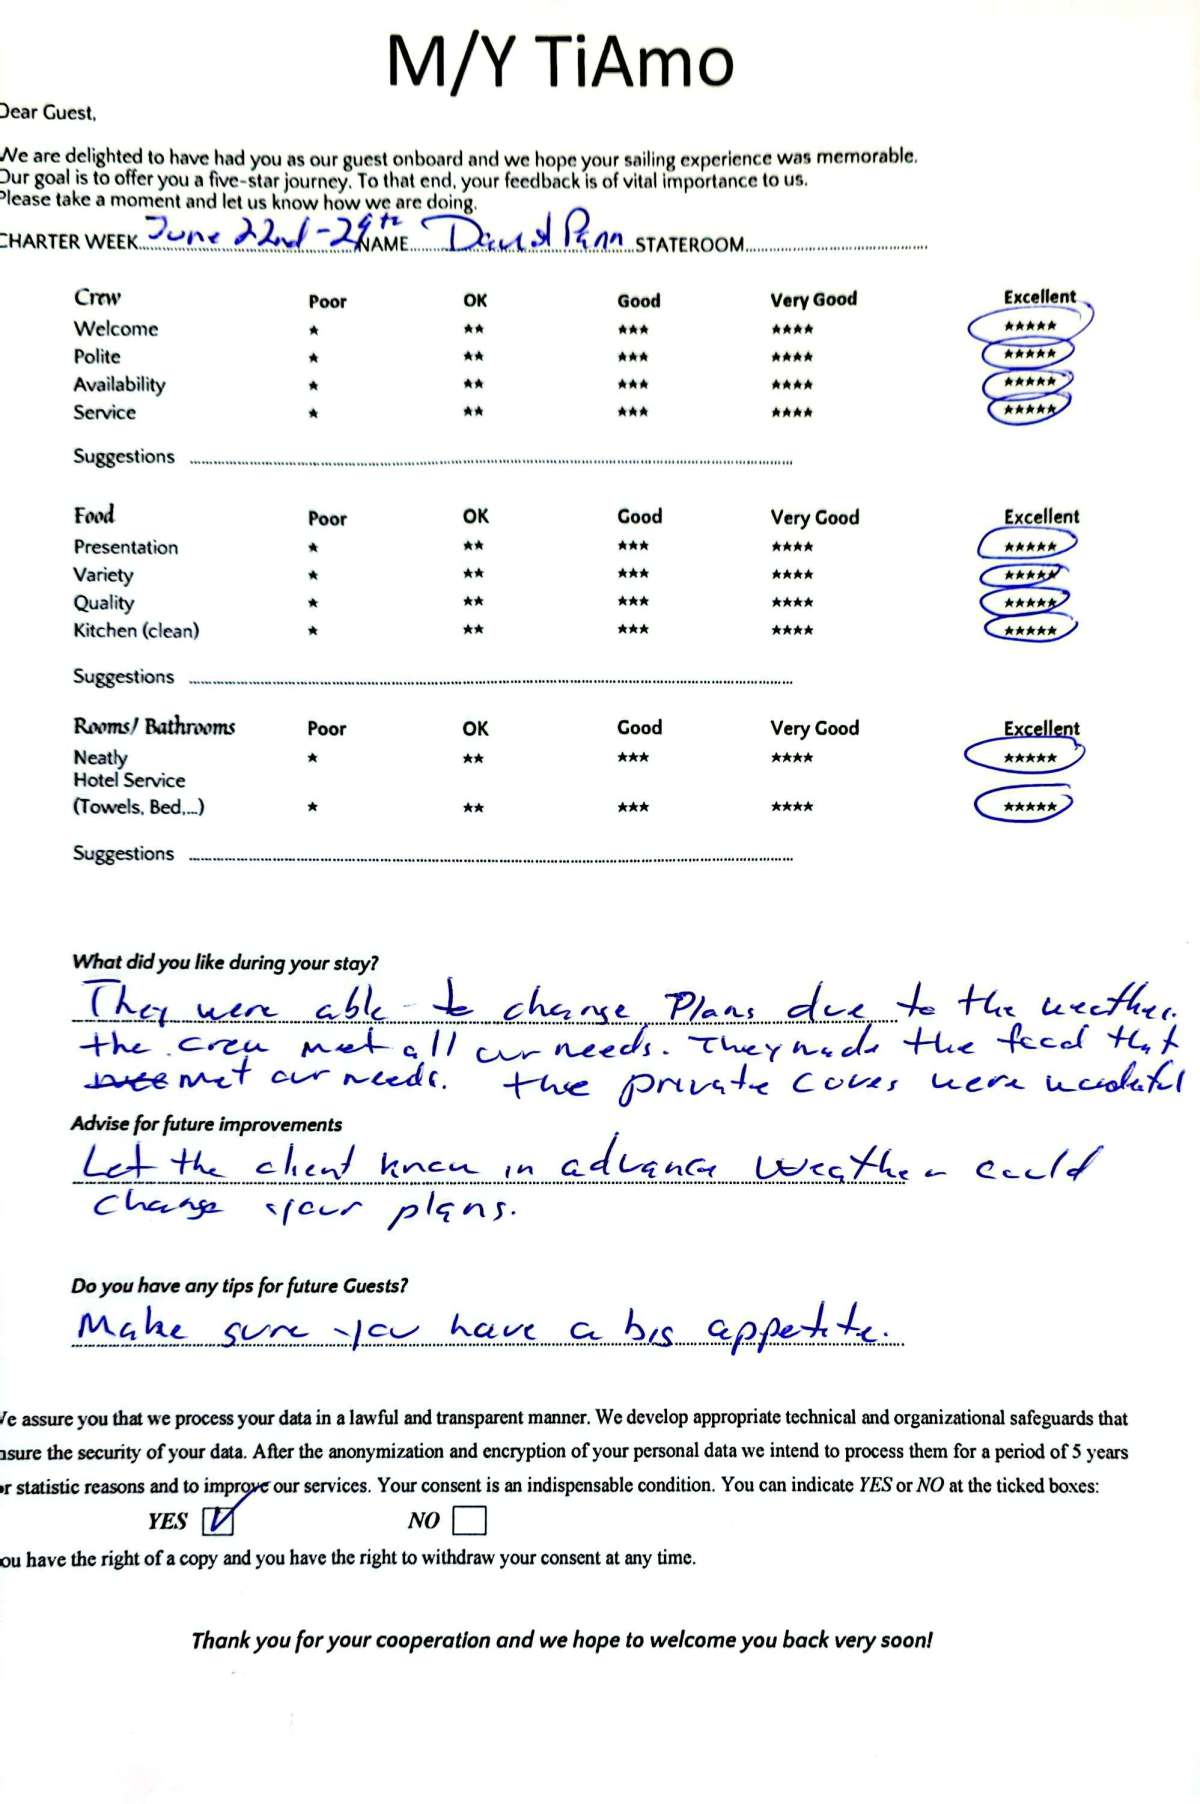 M/Y TiAmo
Dear Guest,
We are delighted to have had you as our guest onboard and we hope your sailing experience was memorable.
Our goal is to offer you a five-star journey. To that end, your feedback is of vital importance to us.
Please take a moment and let us know how we are doing.
CHARTER WEEK June 22nd - 29th NAME David Penn STATEROOM
Crew Poor OK Good Very Good Excellent
Welcome ★ ★★ ★★★ ★★★★ ★★★★★
Polite ★ ★★ ★★★ ★★★★ ★★★★★
Availability ★ ★★ ★★★ ★★★★ ★★★★★
Service ★ ★★ ★★★ ★★★★ ★★★★★
Suggestions
Food Poor OK Good Very Good Excellent
Presentation ★ ★★ ★★★ ★★★★ ★★★★★
Variety ★ ★★ ★★★ ★★★★ ★★★★★
Quality ★ ★★ ★★★ ★★★★ ★★★★★
Kitchen (clean) ★ ★★ ★★★ ★★★★ ★★★★★
Suggestions
Rooms/ Bathrooms Poor OK Good Very Good Excellent
Neatly ★ ★★ ★★★ ★★★★ ★★★★★
Hotel Service
(Towels, Bed,...) ★ ★★ ★★★ ★★★★ ★★★★★
Suggestions
What did you like during your stay?
They were able to change Plans due to the weather.
the crew met all our needs. They made the food that
met our needs. the private coves were wonderful
Advise for future improvements
Let the client know in advance weather could
change your plans.
Do you have any tips for future Guests?
Make sure you have a big appetite.
We assure you that we process your data in a lawful and transparent manner. We develop appropriate technical and organizational safeguards that
nsure the security of your data. After the anonymization and encryption of your personal data we intend to process them for a period of 5 years
or statistic reasons and to improve our services. Your consent is an indispensable condition. You can indicate YES or NO at the ticked boxes:
YES NO
ou have the right of a copy and you have the right to withdraw your consent at any time.
Thank you for your cooperation and we hope to welcome you back very soon!